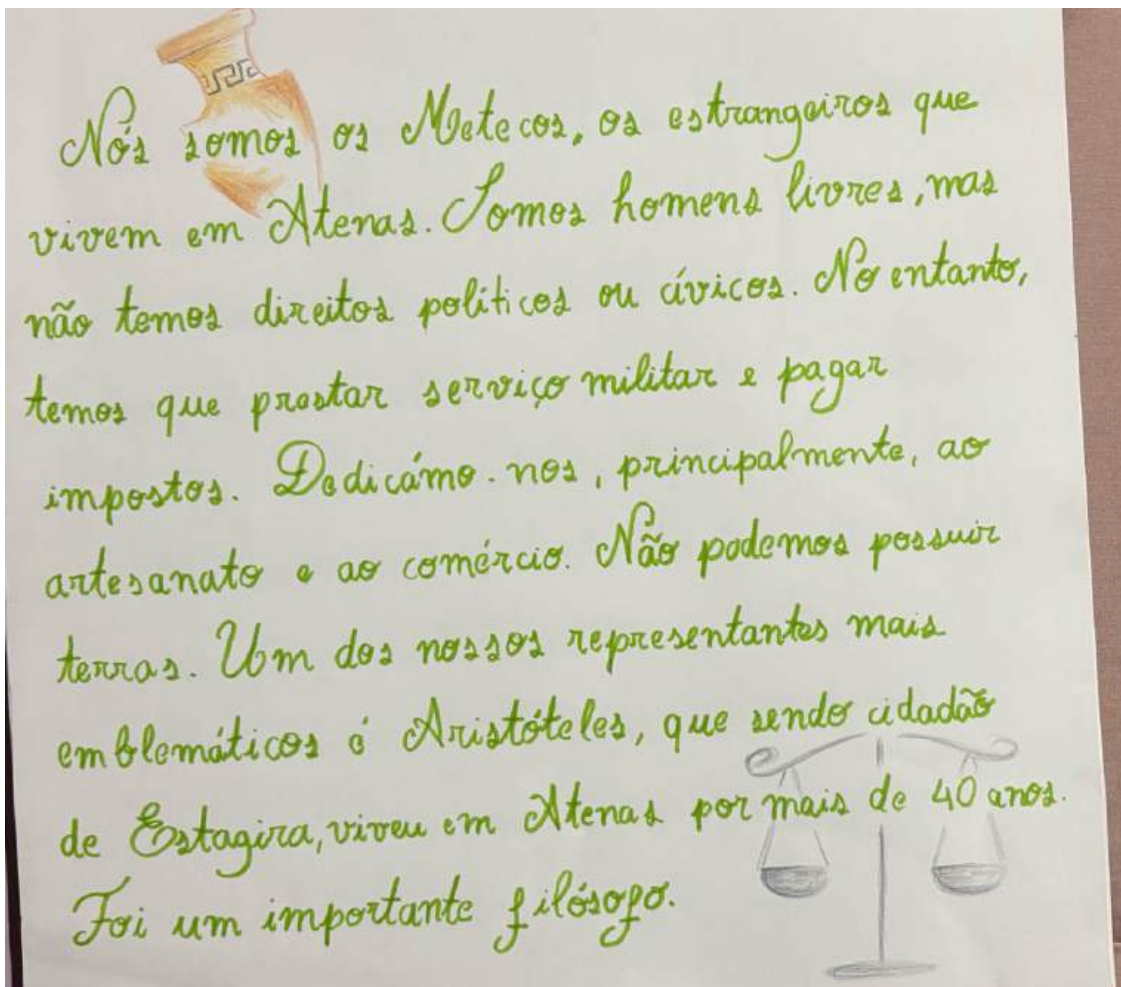 Nós somos os Metecos, os estrangeiros que
vivem em Atenas. Somos homens livres, mas
não temos direitos políticos ou cívicos. No entanto,
temos que prestar serviço militar e pagar
impostos. Dedicámo-nos, principalmente, ao
artesanato e ao comércio. Não podemos possuir
terras. Um dos nossos representantes mais
emblemáticos é Aristóteles, que sendo cidadão
de Estagira, viveu em Atenas por mais de 40 anos.
Foi um importante filósofo.